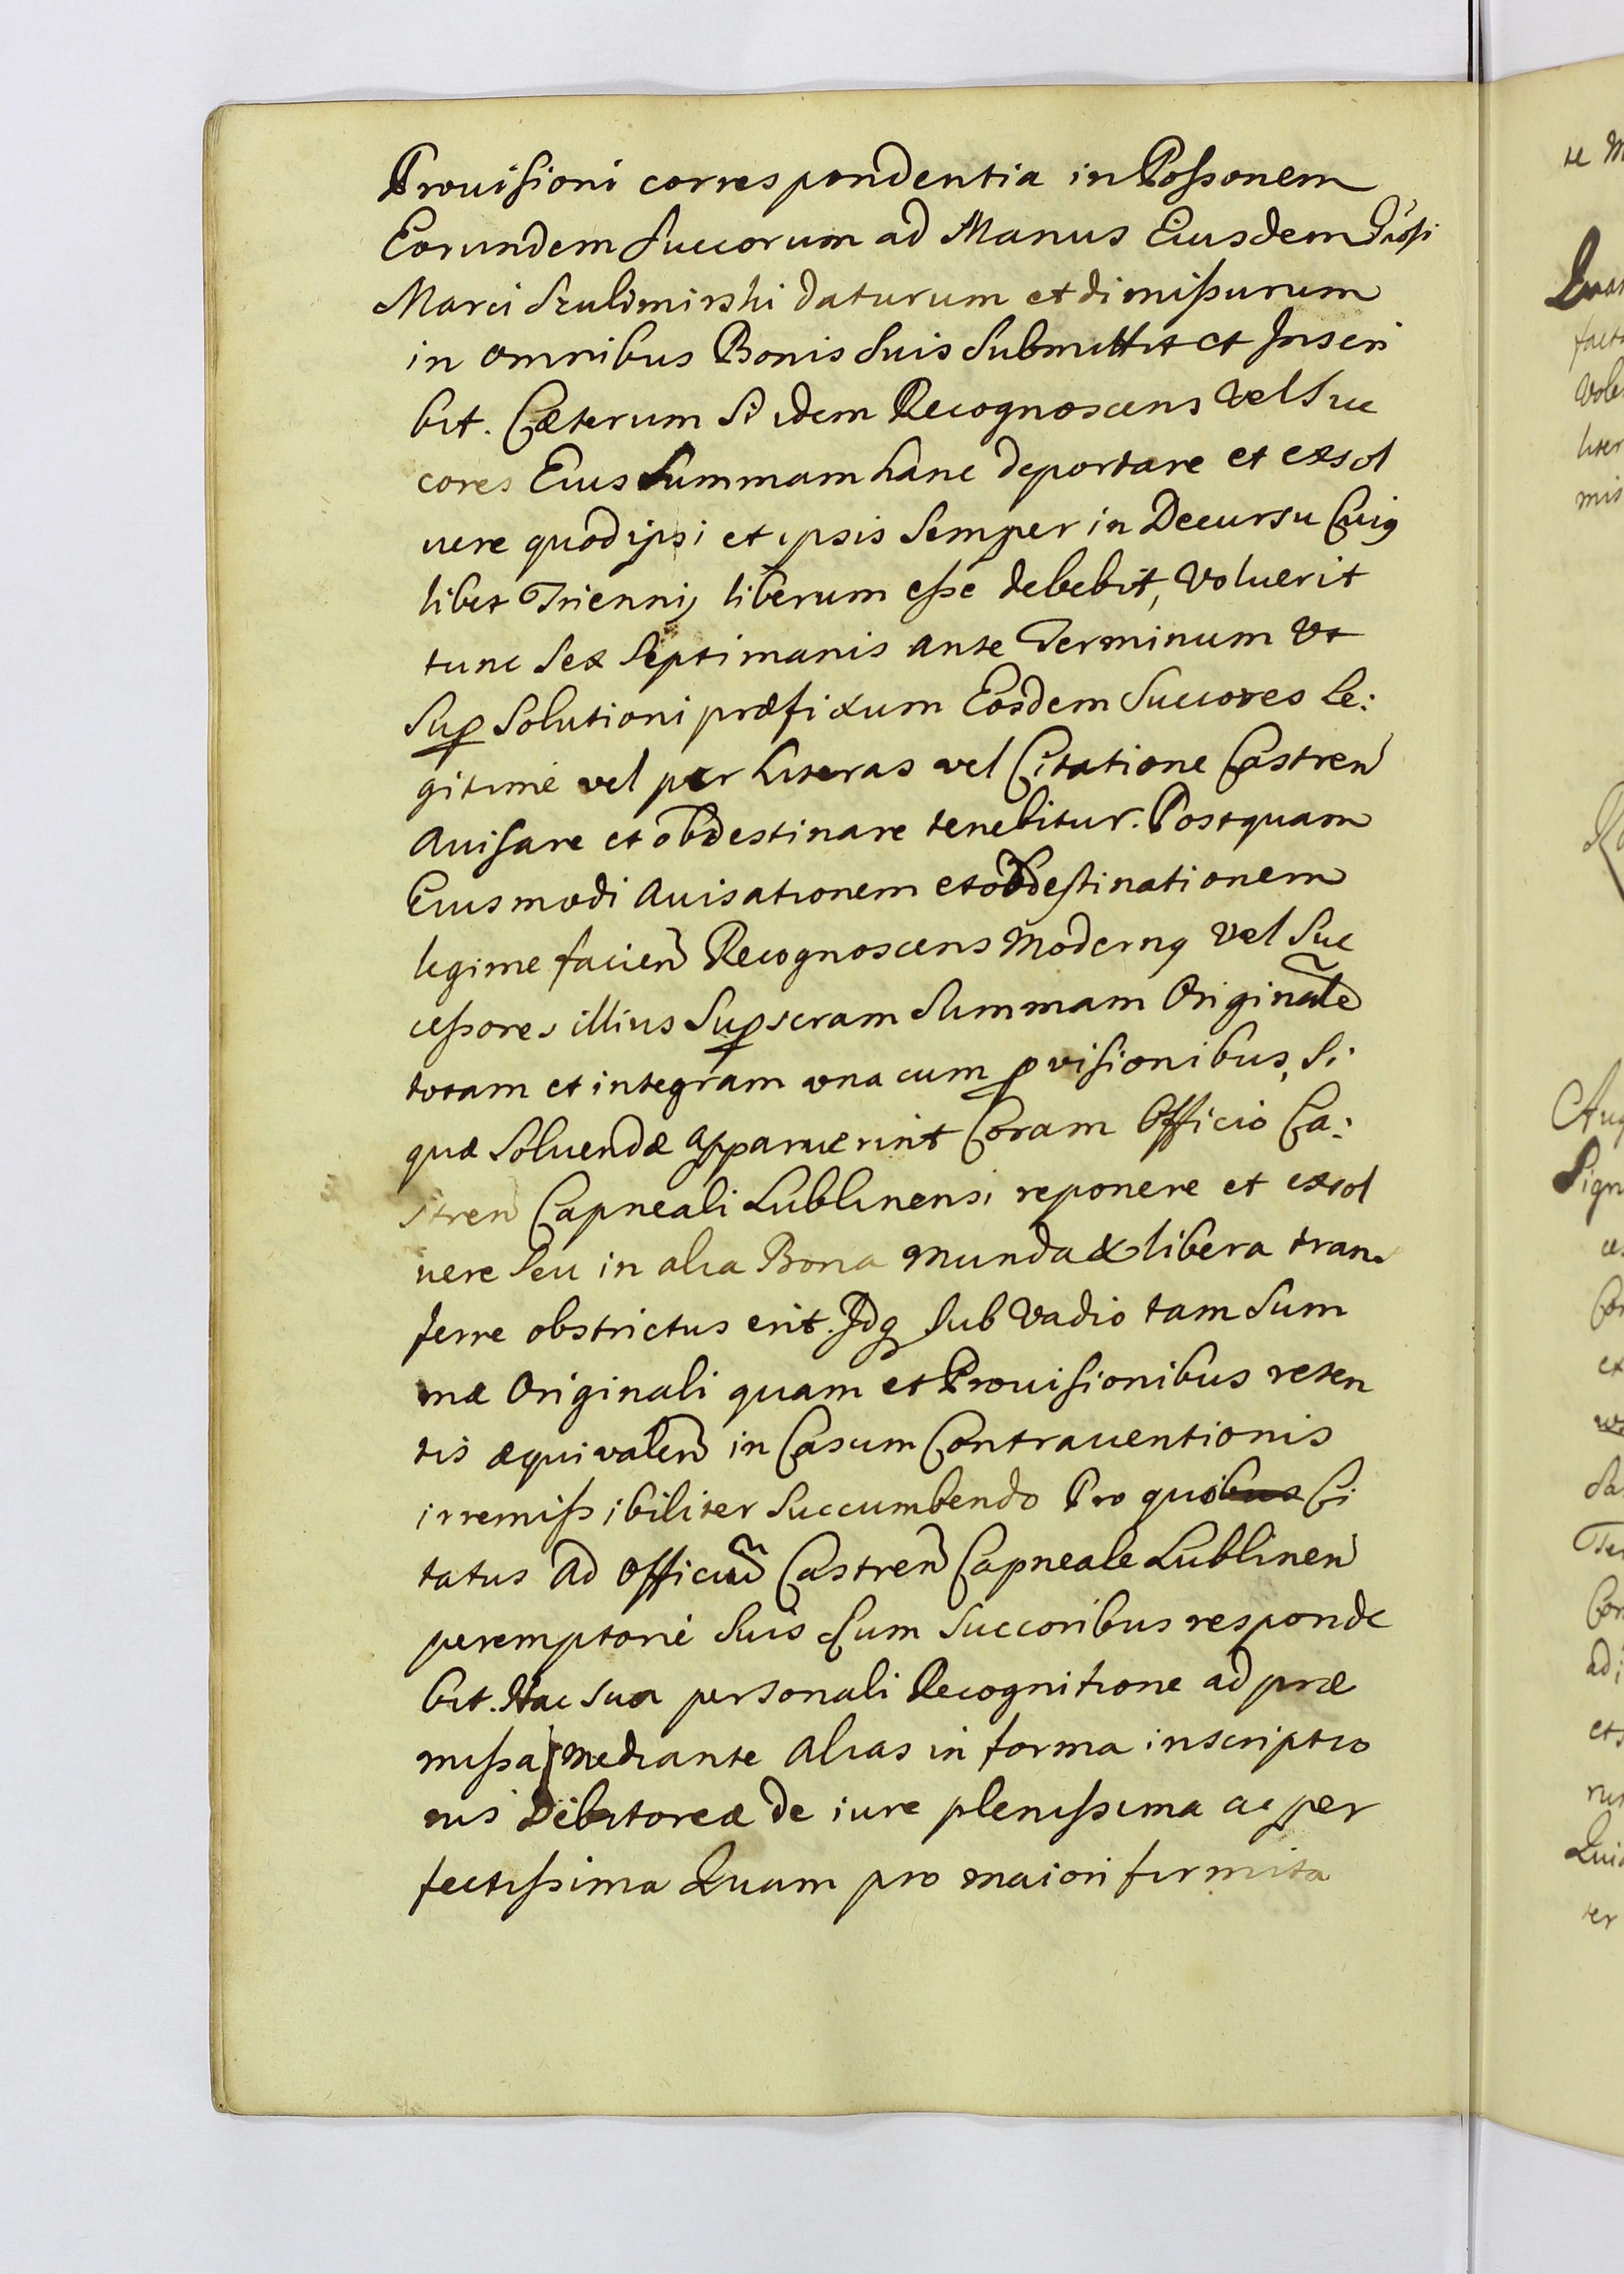 Prouisioni correspondentia in Possonem
Eorundem Succorum ad Manus Eiusdem Gñosi
Marci Szulimirski daturum et dimissurum
in omnibus Bonis Suis Submittit et Inscri
bit. Cæterum Si idem Recognoscens Vel Suc
cores Eius Summam hanc deportare et exsol
uere quod ipsi et ipsis Semper in Decursu Cuiq
libet Triennij liberum esse debebit, Voluerit
tunc Sex Septimanis ante Terminum Vt
Sup Solutioni præfixum Eosdem Succores le:
gitimè vel per Literas vel Citatione Castreñ
Auisare et obdestinare tenebitur. Postquam
Eiusmodi Auisationem et obdestinationem
legime facieñ Recognoscens Modernq vel Suc
cessores illius Supscram Summam Originale
totam et integram vna cum pvisionibus, Si
quæ Soluendæ apparuerint Coram Officio Ca:
streñ Capneali Lublinensi reponere et exsol
uere Seu in alia Bona munda & libera trans
ferre obstrictus erit. Idq Sub Vadio tam Sum
mæ Originali quam et Prouisionibus reten
tis æquivaleñ in Casum Contrauentionis
irremissibiliter Succumbendo Pro quibus Ci
tatus Ad Officiũ Castreñ Capneale Lublineñ
peremptoriè Suis Cum Succoribus responde
bit. Hac Sua personali Recognitione ad præ
missa Mediante Alias in forma inscriptio
nis Debitoreæ de iure plenissima ac per
fectissima Quam pro maiori firmita